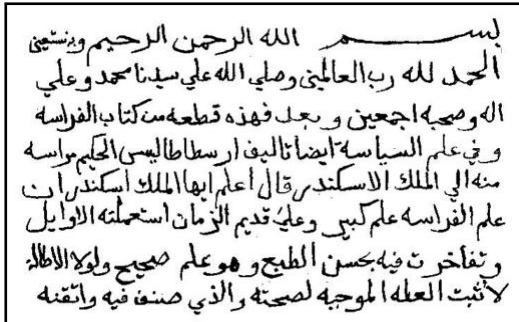 بسم الله الرحمن الرحيم وبه نستعين
الحمد لله رب العالمين وصلي الله علي سيدنا محمد وعلي
اله وصحبه اجمعين وبعد فهذه قطعه من كتاب الفراسه
وفي علم السياسة ايضا تاليف ارسطاطاليس الحكيم مراسه
منه الي الملك الاسكندر قال اعلم ايها الملك اسكندر ان
علم الفراسه علم كبير وعلي قديم الزمان استعملته الاوايل
وتفاخرت فيه بحسن الطبع وهو علم صحيح ولولا الاطالة
لاثبت العله الموجبه لصحته والذي صنف فيه واتقنه